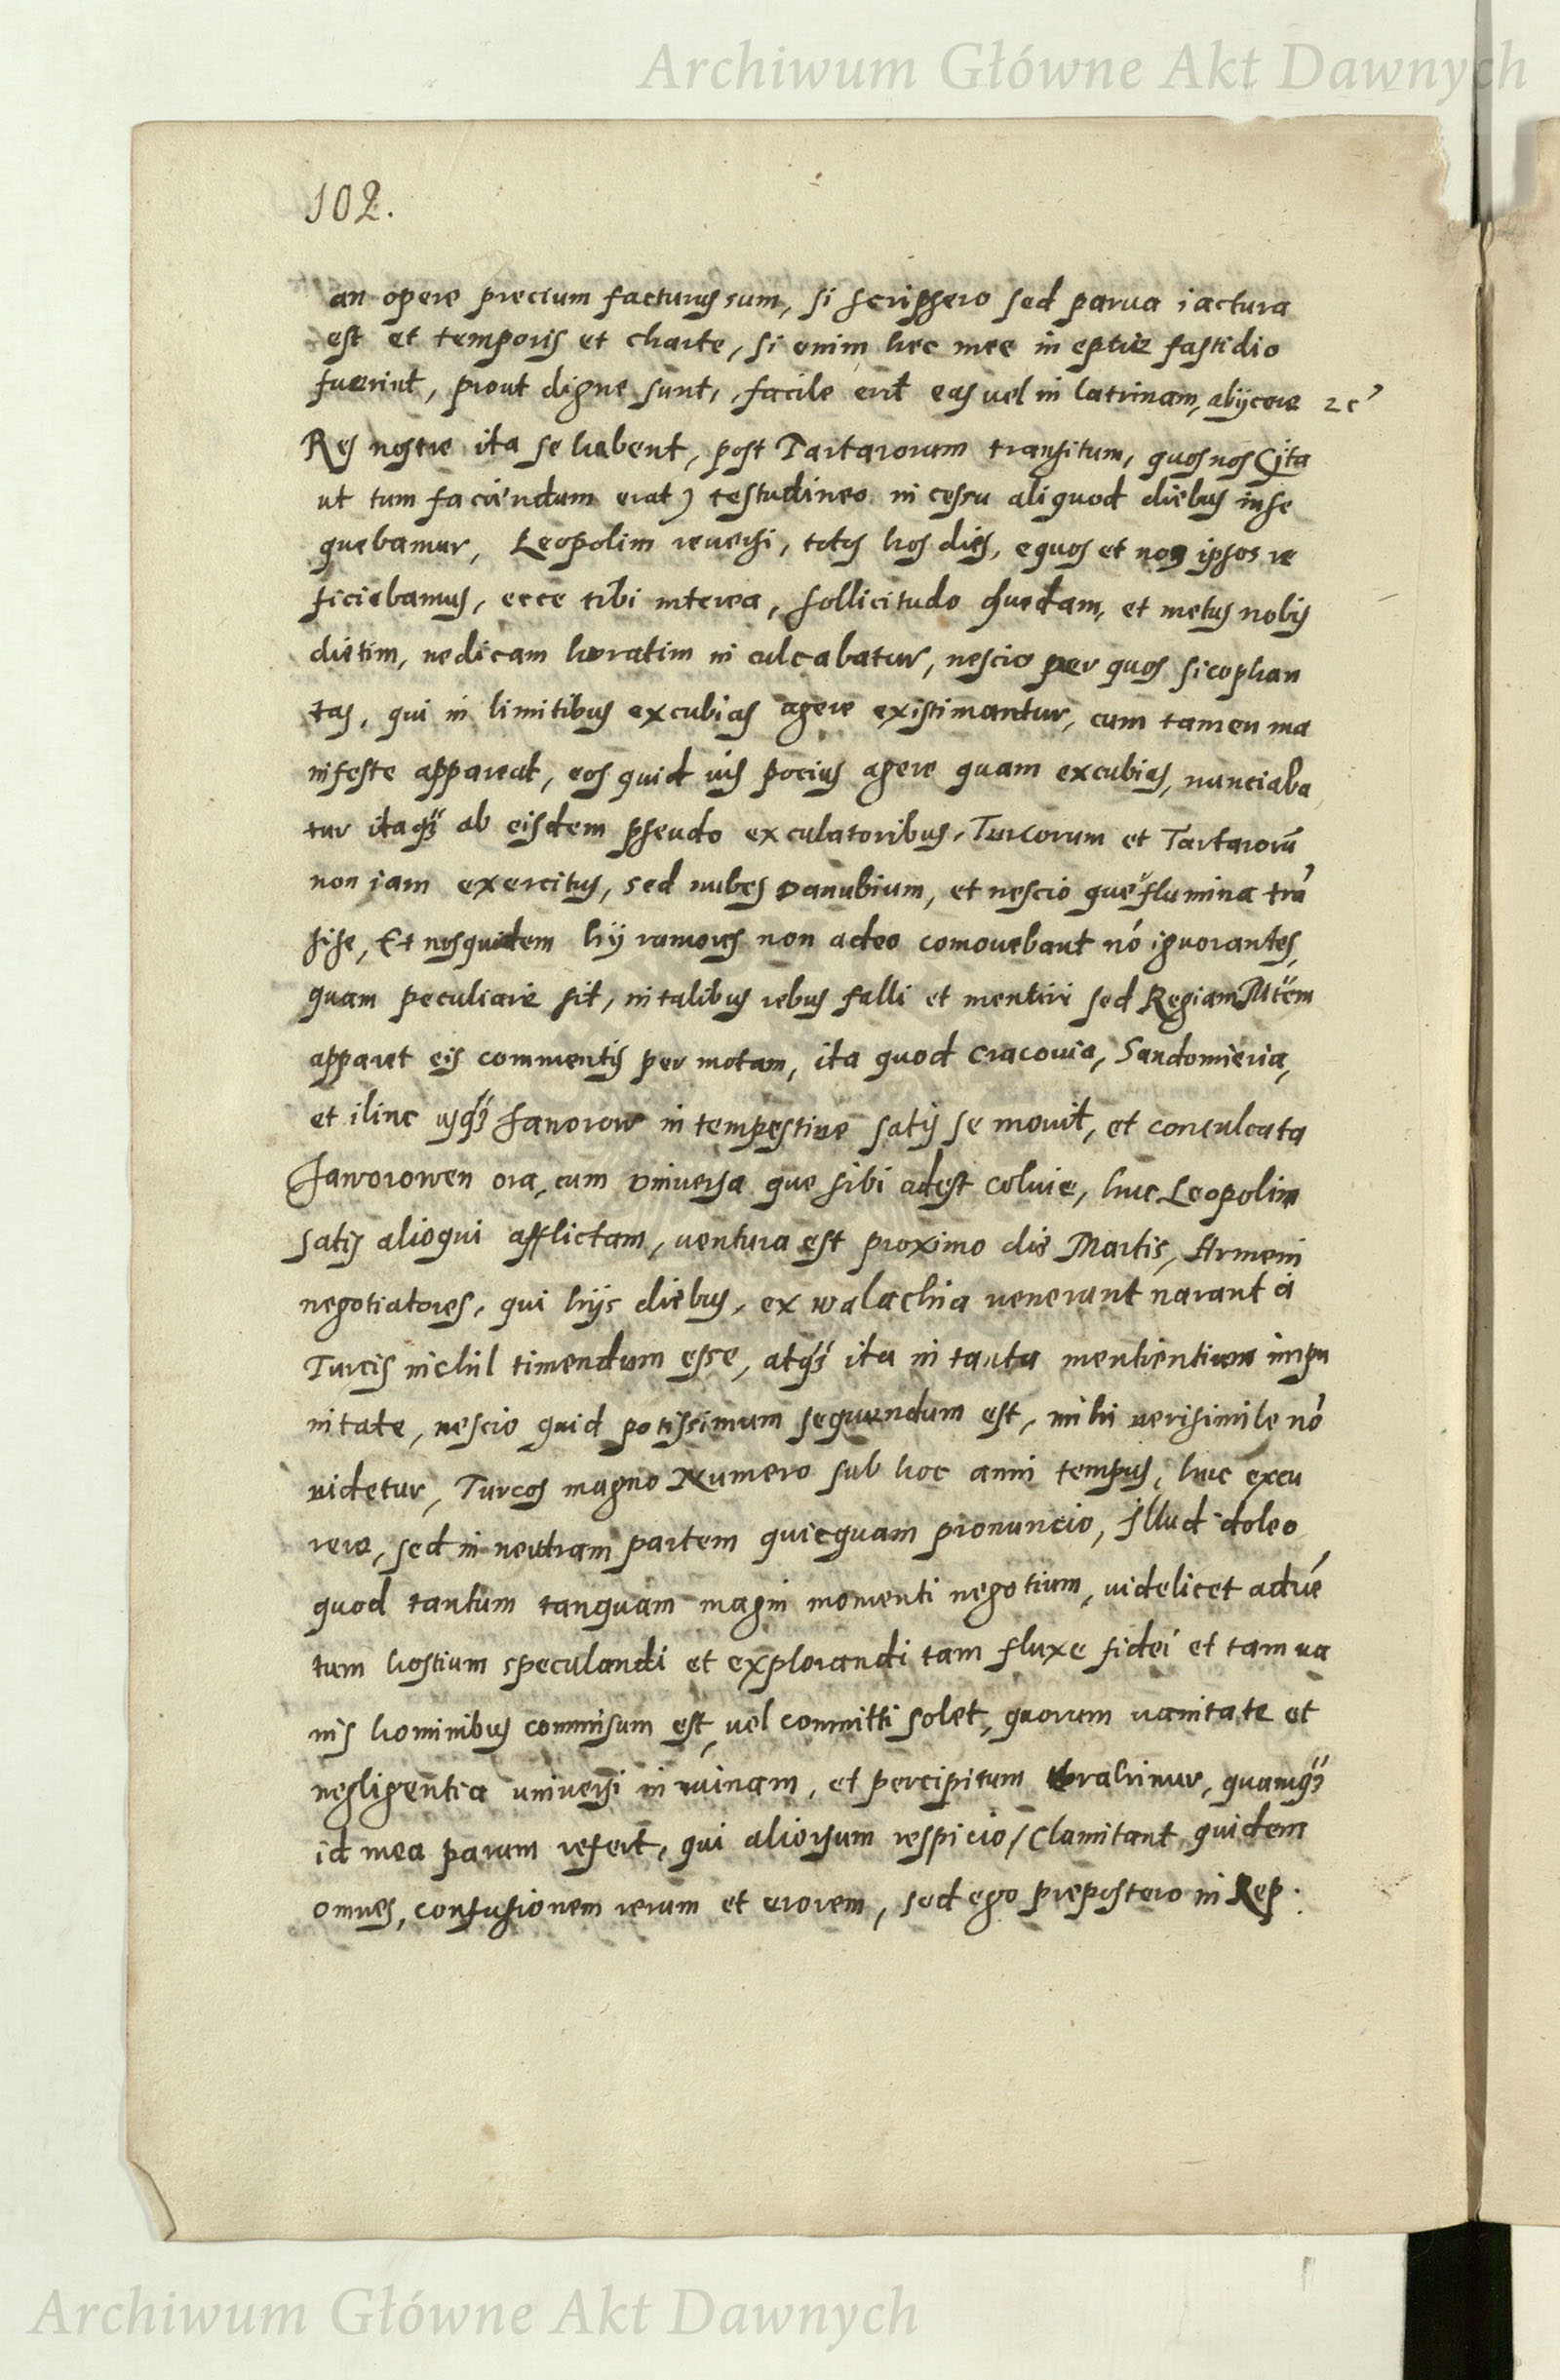 Archiwum Główne Akt Dawnych
102.
an opere precium facturus sum, si scripsero sed parua iactura
est et temporis et charte, si enim hec mee in eptie fastidio
fuerint, prout digne sunt, facile erit eas uel in latrinam, abijcere 2c
Res nostre ita se habent, post Tartarorum transitum, quos nos (ita
ut tum faciendum erat) testudineo in cessu aliquod diebus inse
quebamur, Leopolim reuersi, totos hos dies, equos et nos ipsos re
ficiebamus, ecce tibi interea, sollicitudo quedam, et metus nobis
dietim, nedicam horatim in culcabatur, nescio per quos sicophan
tas, qui in limitibus excubias agere existimantur, cum tamen ma
nifeste appareat, eos quid uis pocius agere quam excubias, nunciaba
tur itaq3 ab eisdem pseudo exculatoribus, Turcorum et Tartarorū
non iam exercitus, sed nubes Danubium, et nescio que flumina trā
sise, Et nosquidem hij rumores non adeo comouebant nō ignorantes,
quam peculiare sit, in talibus rebus falli et mentiri sed Regiam Mtem
apparet eis commentis per motam, ita quod Cracouia, Sandomieria,
et ilinc usq3 Janorow in tempestiue satis se mouit, et consulcata
Jaworowen ora, cum vniuersa que sibi adest coluie, huc Leopolim
satis alioqui afflictam, uentura est proximo die Martis, Armeni
negotiatores, qui hijs diebus, ex walachia uenerunt narant à
Turcis nichil timendum esse, atq3 ita in tanta mentientium impu
nitate, nescio quid potissimum sequendum est, mihi uerisimile nō
uidetur, Turcos magno Numero sub hoc anni tempus, huc excu
rere, sed in neutram partem quicquam pronuncio, Illud doleo
quod tantum tanquam magni momenti negotium, uidelicet aduē
tum hostium speculandi et explorandi tam fluxe fidei et tam ua
nis hominibus commisum est, uel committi solet, quorum uanitate et
negligentia uniuersi in ruinam, et percipitum trahimur, quamq3
id mea parum refert, qui aliorsum respicio / Clamitant quidem
omnes, confusionem rerum et erorem, sed ego prepostero in Rep.
Archiwum Główne Akt Dawnych